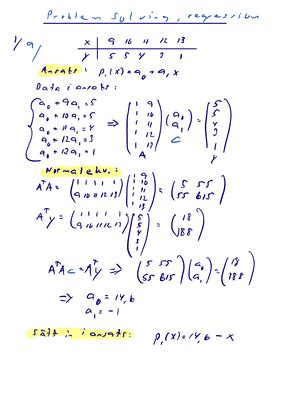 Problem solving, regression
1/ a/
x | 9 10 11 12 13
y | 5 5 4 3 1
Ansats: p₁(x) = a₀ + a₁x
Data i ansats:
{ a₀ + 9a₁ = 5
a₀ + 10a₁ = 5
a₀ + 11a₁ = 4
a₀ + 12a₁ = 3
a₀ + 13a₁ = 1
⇒ (1 9
1 10
1 11
1 12
1 13) (a₀
a₁) = (5
5
4
3
1)
A c y
Normalekv.:
AᵀA = (1 1 1 1 1
9 10 11 12 13) (1 9
1 10
1 11
1 12
1 13) = (5 55
55 615)
Aᵀy = (1 1 1 1 1
9 10 11 12 13) (5
5
4
3
1) = (18
188)
AᵀAc = Aᵀy ⇒ (5 55
55 615) (a₀
a₁) = (18
188)
⇒ a₀ = 14,6
a₁ = -1
Sätt in i ansats: p₁(x) = 14,6 - x